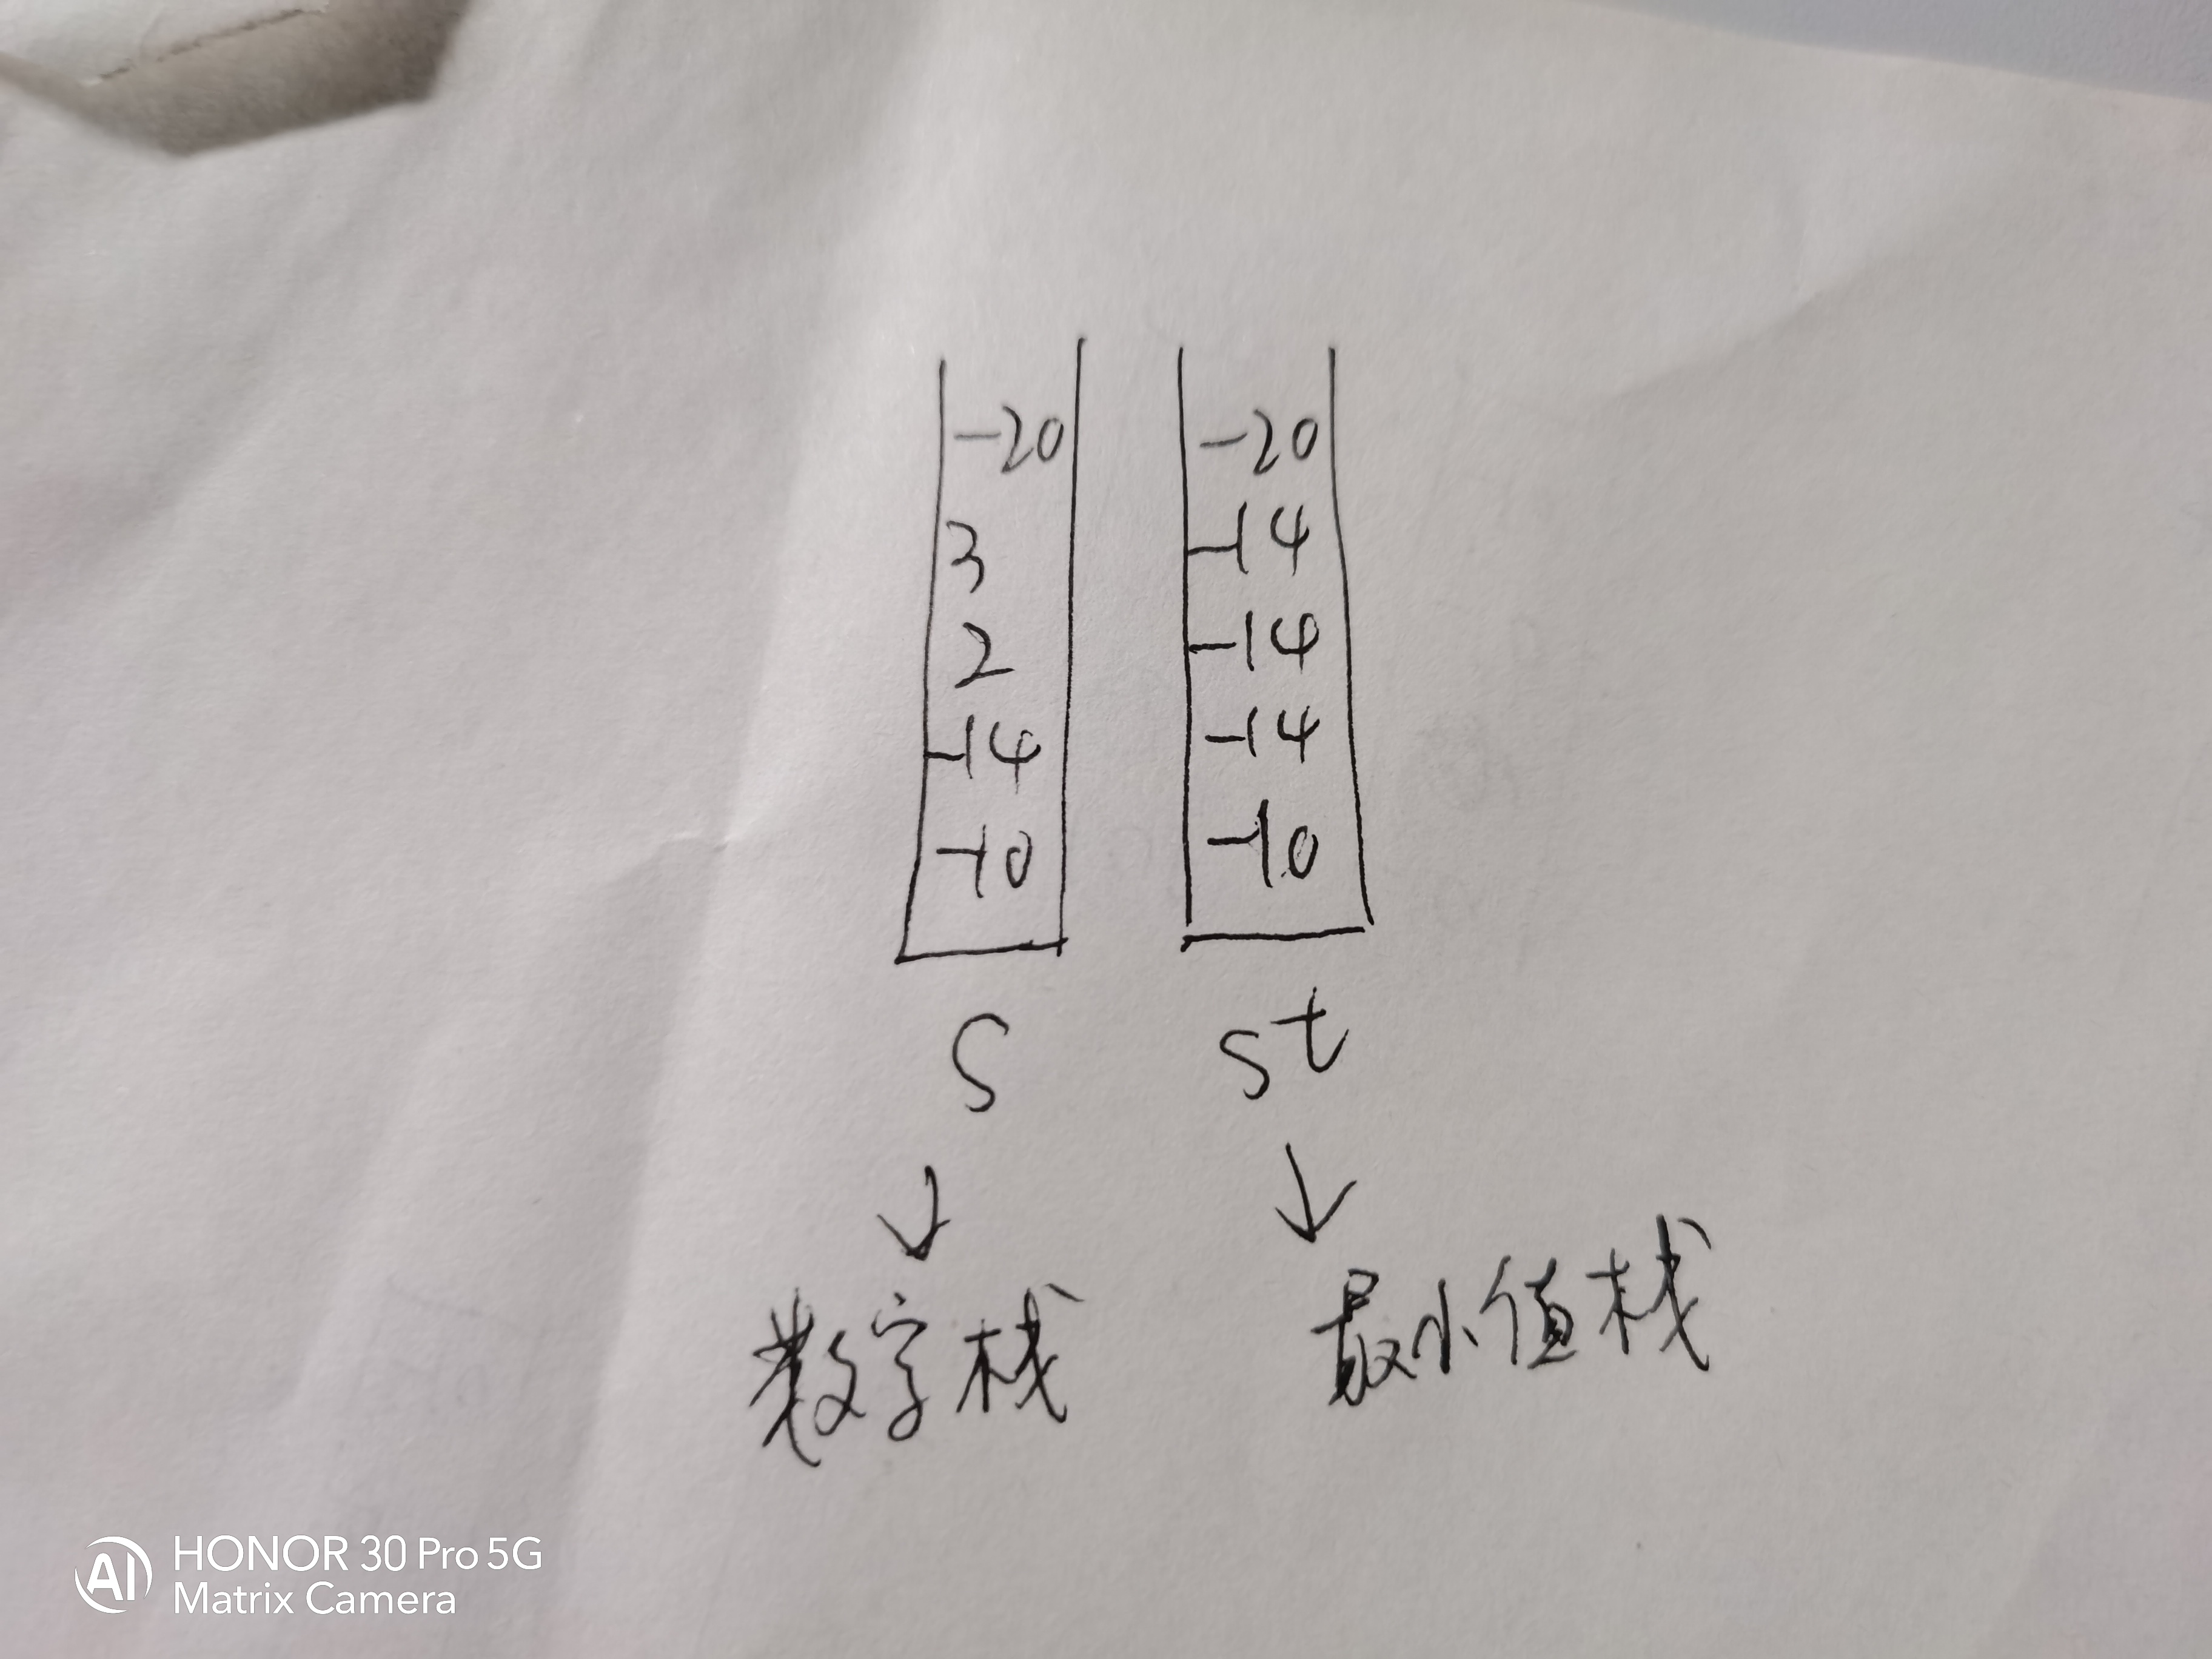 -20 -20
3 -14
2 -14
-14 -14
-10 -10
S st
↓ ↓
数字栈 最小值栈
AI HONOR 30 Pro 5G
Matrix Camera